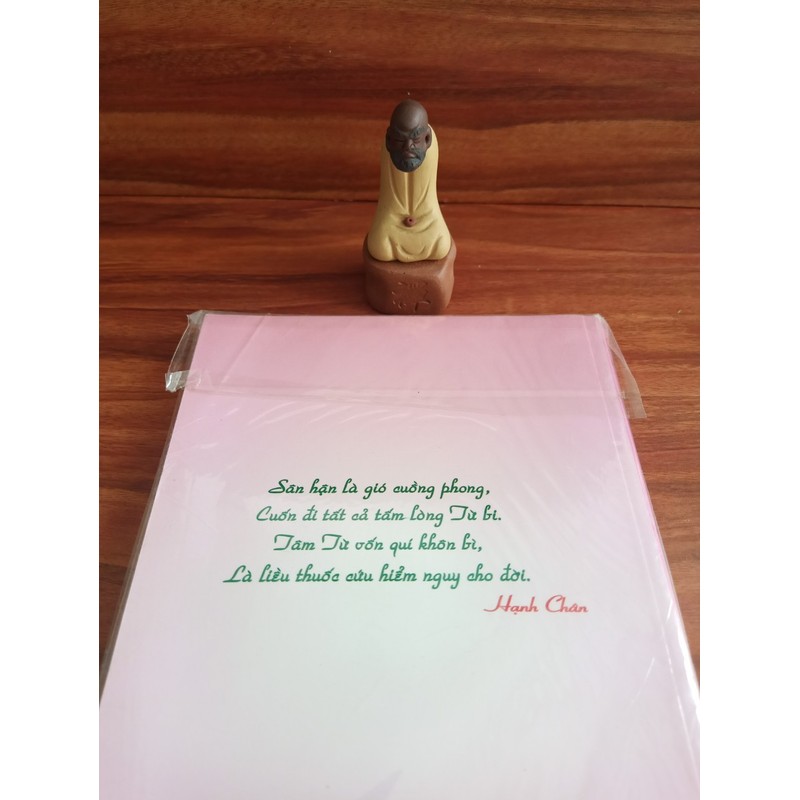 Sân hận là gió cuồng phong,
Cuốn đi tất cả tấm lòng Từ bi.
Tâm Từ vốn quí khôn bì,
Là liều thuốc cứu hiểm nguy cho đời.
Hạnh Chân